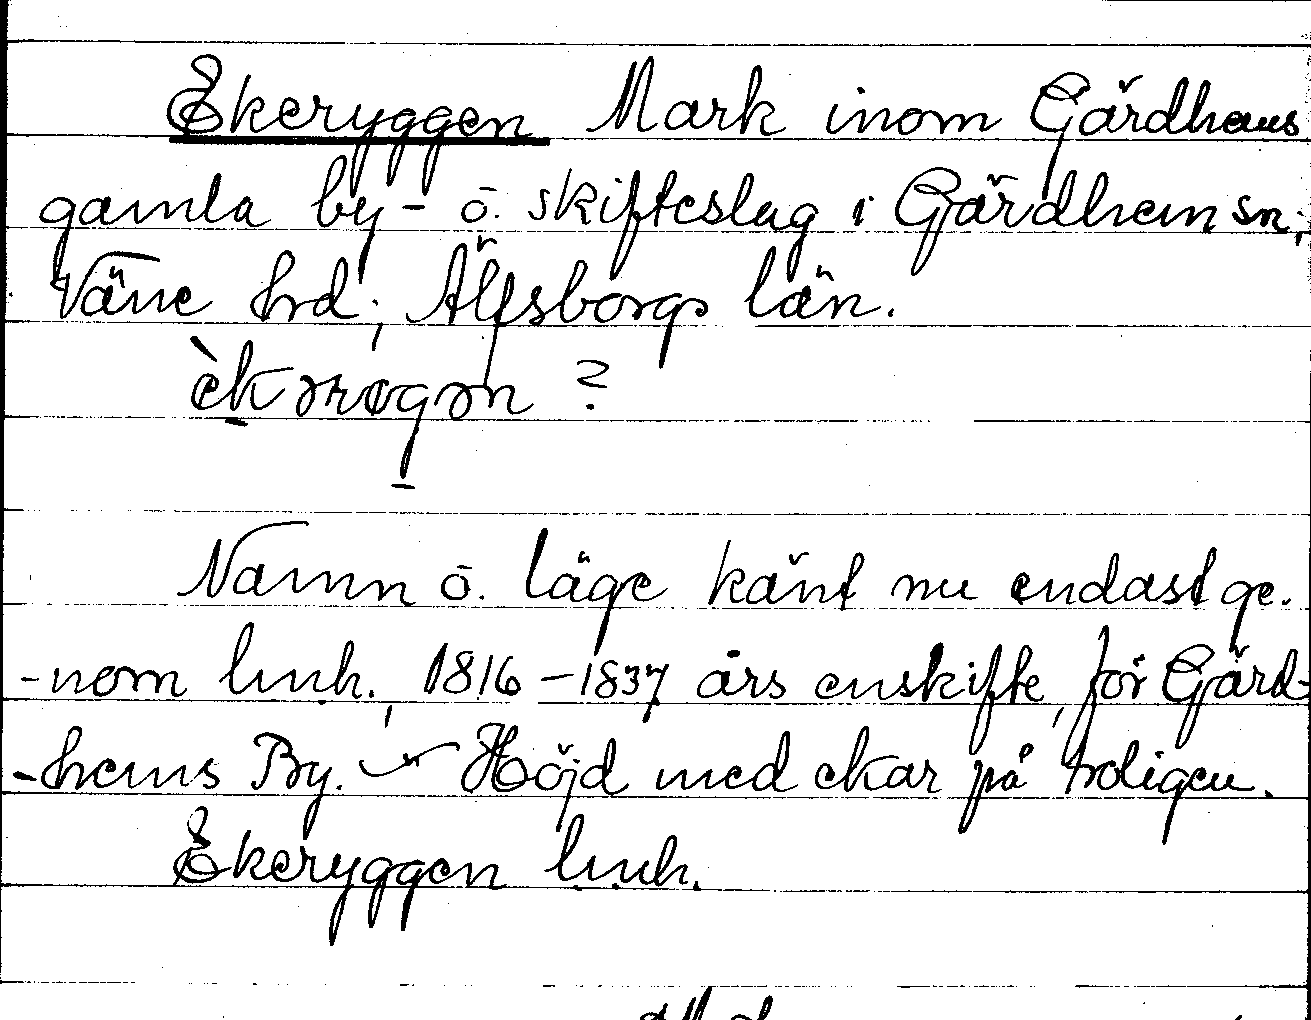 Ekeryggen Mark inom Gärdhems
gamla by- o. skifteslag i Gärdhem sn;
Väne hrd; Älfsborgs län.
èkərøgən ?
Namn o. läge känt nu endast ge-
-nom lmh. 1816-1837 års enskifte, för Gärd-
-hems By. Höjd med ekar på troligen.
Ekeryggen lmh.